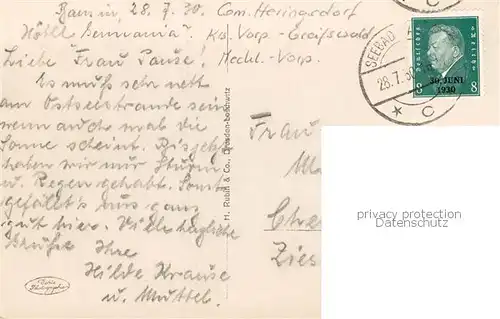 28. 7. 30. Com. Heringsdorf
Hotel Germania. Kr. Vorp.-Greifswald
Meckl.-Vorp.
Liebe Frau Pause!
Es muß sehr nett
am Ostseestrande sein
wenn auch mal die
Sonne scheint. Bis jetzt
haben wir nur Sturm
u. Regen gehabt. Sonst
gefällt's uns ganz
gut hier. Viele herzliche
Grüße Ihre
Hilde Krause
u. Muttel.
H. Rubin & Co., Dresden-Blasewitz
Frau
SEEBAD
28.7.30
* C
C
Deutsches Reich
8 8
30. JUNI
1930
privacy protection
Datenschutz